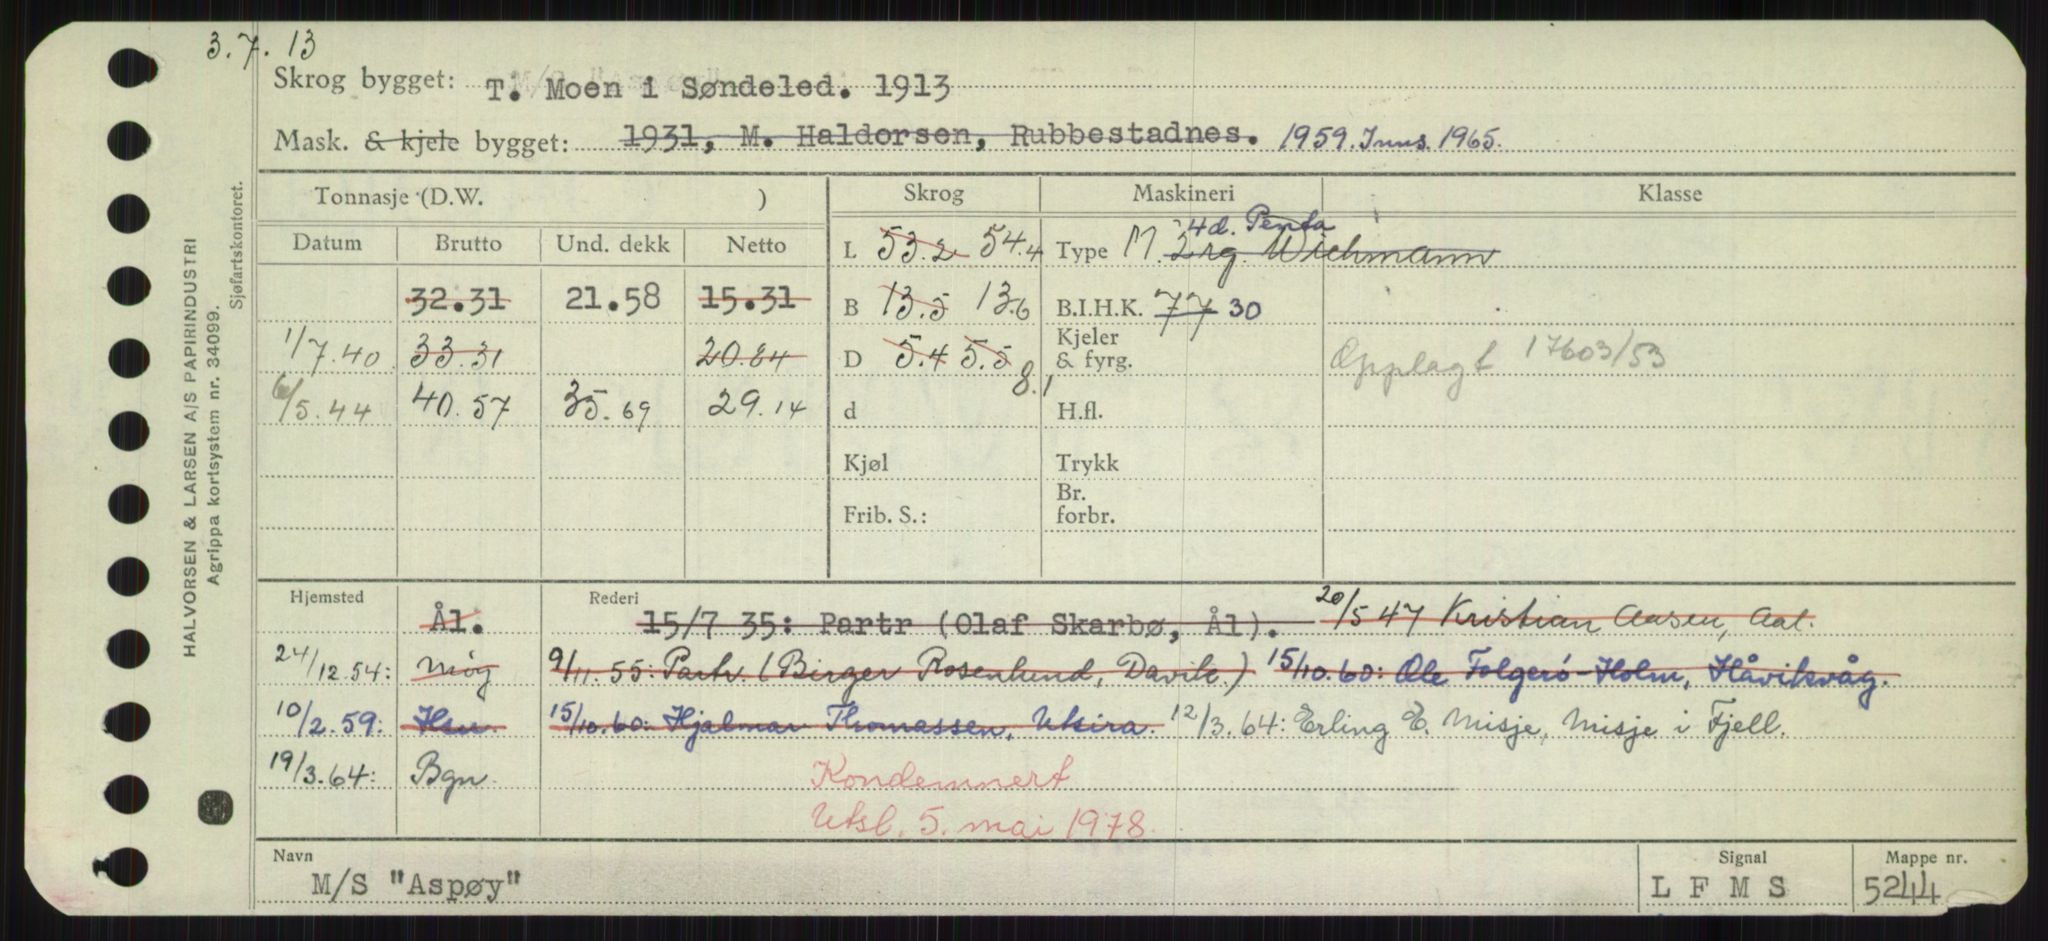 3.7.13
Skrog bygget: T. Moen i Søndeled. 1913
Mask. & kjele bygget: 1931, M. Haldorsen, Rubbestadnes. 1959. Inns. 1965.
HALVORSEN & LARSEN A/S PAPIRINDUSTRI
Agrippa kortsystem nr. 34099.
Sjøfartskontoret.
Tonnasje (D.W. ) Skrog Maskineri Klasse
Datum Brutto Und. dekk Netto
4d. Penta
L 53.2 54.4 Type M. 2rg. Wichmann
32.31 21.58 15.31 B 13.5 13.6 B.I.H.K. 77 30
1/7.40 33.31 20.84 D 5.4 5.5 8.1 Kjeler & fyrg. Opplagt 17603/53
6/5.44 40.57 35.69 29.14 d H.fl.
Kjøl Trykk
Frib. S.: Br. forbr.
Hjemsted Rederi
Ål. 15/7 35: Partr (Olaf Skarbø, Ål). 20/5 47 Kristian Aasen, Aal.
24/12.54: Møg 9/11.55: Partr. (Birger Rosenlund, Davik.) 15/10.60: Ole Folgerö-Holm, Håvikvåg.
10/2.59: Hsu. 15/10.60: Hjalmar Thomassen, Utsira. 12/3.64: Erling E. Misje, Misje i Fjell.
19/3.64: Bgn. Kondemnert
Utsl. 5. mai 1978.
Navn Signal Mappe nr.
M/S "Aspøy" L F M S 5244